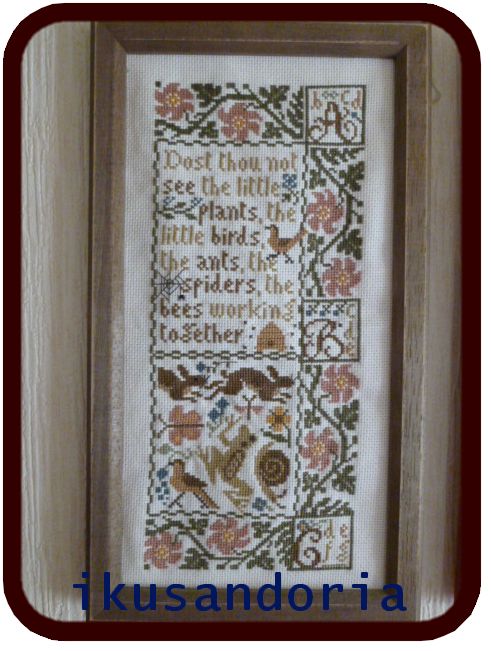 b c d
A
Dost thou not
see the little
plants, the
little birds,
the ants, the
spiders, the
bees working
together
B
C d e
f g
ikusandoria